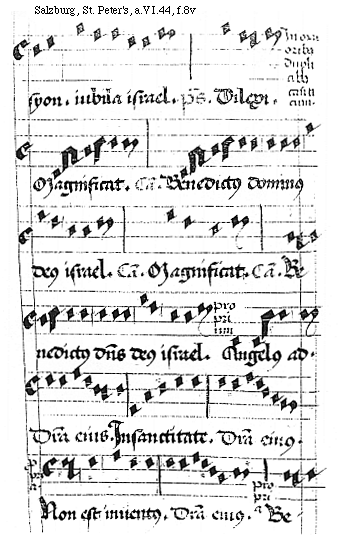 Salzburg, St. Peter's, a.VI.44, f.8v
syon. iubila israel. ps. Dilexi.
Magnificat. Ca. Benedictus dominus
deus israel. Ca. Magnificat. Ca. Be
pro
pri
um
nedictus dns deus israel. Angelus ad.
Dra eius. Insanctitate. Dra eius.
pro
pri
Non est inventus. Dra eius. a Be